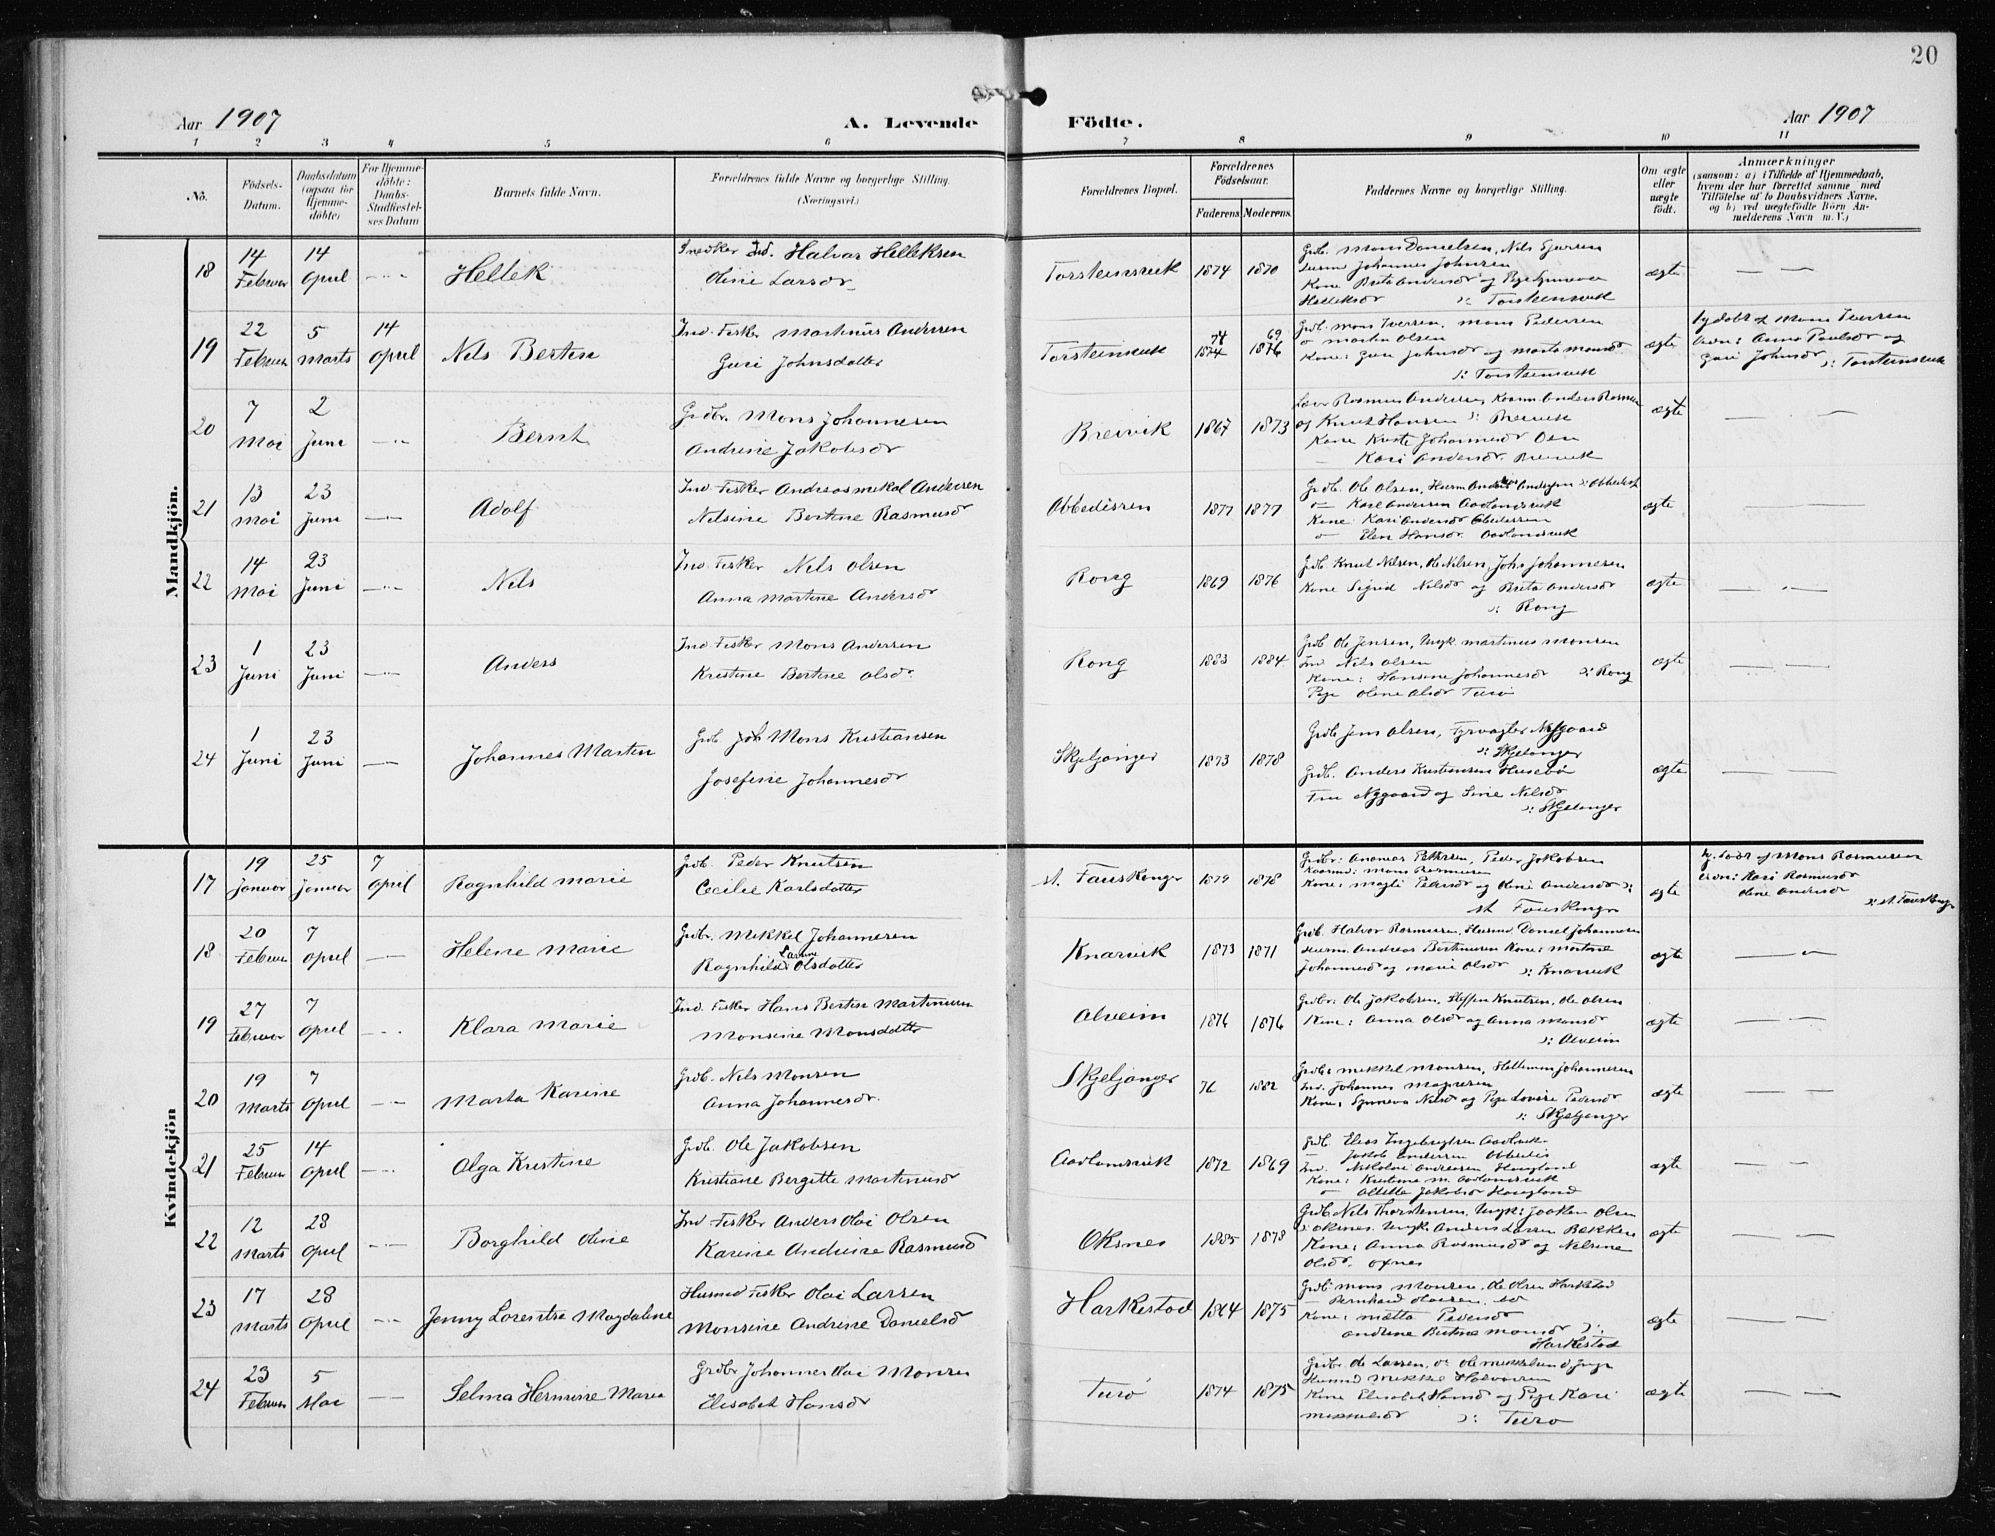 20
Aar 1907
A. Levende
Födte.
Aar 1907
1 2 3 4 5 6 7 8 9 10 11
No.
Födsels-
Datum.
Daabsdatum
(ogsaa for
Hjemme-
döbte)
For Hjemme-
döbte:
Daabs-
Stadfæstel-
ses Datum
Barnets fulde Navn.
Forældrenes fulde Navne og borgerlige Stilling.
(Næringsvei.)
Forældrenes Bopæl.
Forældrenes
Födselsaar.
Faderens
Moderens.
Faddernes Navne og borgerlige Stilling.
Om ægte
eller
uægte
födt.
Anmærkninger
(saasom: a) i Tilfælde af Hjemmedaab,
hvem der har forrettet samme med
Tilföielse af to Daabsvidners Navne,
og b) ved uægtefödte Börn An-
melderens Navn m. V.)
Mandkjön.
18
14 Februar
14 April
Hellek
Snedker Ind. Halvar Helleksen
Oline Larsdr
Torsteinsvik
1874 1870
Grdb. Mons Danielsen, Nils
Johannes Johnsen
Kone Brita Andersdr og Pige Synneva
Helleksdr ɔ: Torsteinsvik
ægte
19
22 Februar
5 Marts
14 April
Nils Bertin
Ind. Fisker Martinus Andersen
Guri Johnsdatter
Torsteinsvik
74 69
1874 1876
Grdb. Mons Iversen, Mons Pedersen
o Martin Olsen
Kone: Guri Johnsdr og Marta Monsdr
ɔ: Torsteinsvik
ægte
hj.døbt af Mons Iversen
vidn: Anna Paulsdr og
Guri Johnsdr ɔ: Torsteinsvik
20
7 Mai
2 Juni
Bernt
Grdbr. Mons Johannesen
Andrine Jakobsdr
Breivik
1867 1873
Rasmus Andersen, Anders Rasmusen
og Knut Hansen ɔ: Breivik
Kone Johannesdr Oen
— Kari Andersdr. Breivik
ægte
21
13 Mai
23 Juni
Adolf
Ind. Fisker Andreas Mikal Andersen
Nilsine Bertine Rasmusd
Obbedissen
1877 1877
Grdb. Ole Olsen, Andersen ɔ: Obbedis
o— Karl Andersen Aadlandsvik
Kone: Kari Andersdr Obbedissen
o— Elen Hansdr. Aadlandsvik
ægte
22
14 Mai
23 Juni
Nils
Ind. Fisker Nils Olsen
Anna Martine Andersdr
Rong
1869 1876
Grdb Knut Nilsen, Ole Nilsen, John Johannesen
Kone Sigrid Nilsdr og Brita Andersdr
ɔ: Rong
ægte
23
1 Juni
23 Juni
Anders
Ind Fisker Mons Andersen
Kristine Bertine Olsdr.
Rong
1883 1884
Grdb Ole Jensen, Ungk Martinus Monsen
Ind Nils Olsen
Kone: Hansine Johannesdr ɔ: Rong
Pige Oline Olsdr Turø
ægte
24
1 Juni
23 Juni
Johannes Martin
Grdb Joh Mons Kristiansen
Josefine Johannesdr
Skjeljanger
1873 1878
Grdb Jens Olsen, Fyrvogter Nygaard
ɔ: Skjelanger
Grdb. Anders Kristiansen Husebø
Fru Nygaard og Sine Nilsdr
ɔ: Skjelanger
ægte
Kvindekjön
17
19 Januar
25 Januar
7 April
Ragnhild Marie
Grdb. Peder Knutsen
Cecilie Karlsdatter
st. Fauskanger
1879 1878
Grdbr: Ananias Pettersen, Peder Jakobsen
Mons Rasmusen
Kone: Magli Pedersdr og Oline Andersdr ɔ:
st Fauskanger
ægte
hj. døbt af Mons Rasmusen
vidn: Kari Rasmusdr
Oline Andersdr
ɔ: st. Fauskanger
18
20 Februar
7 April
Helene Marie
Grdbr. Mikkel Johannesen
Ragnhild Larsine Olsdatter
Knarvik
1873 1871
Grdb. Halvor Rasmusen, Husmd Daniel Johannesen
Husm. Andreas Bertinusen Kone: Martine
Johannesd og Marie Olsdr ɔ: Knarvik
ægte
19
27 Februar
7 April
Klara Marie
Ind. Fisker Hans Bertin Martinusen
Monsine Monsdatter
Alveim
1876 1876
Grdbr: Ole Jakobsen, Steffen Knutsen, Ole Olsen
Kone: Anna Olsdr og Anna Monsdr
ɔ: Alveim
ægte
20
19 Marts
7 April
Marta Karine
Grdb. Nils Monsen
Anna Johannesdr.
Skjeljanger
76 1882
Grdb: Mikkel Monsen, Johannesen
Ind. Johannes Magnesen
Kone: Synneva Nilsdr og Pige Lovise Pedersdr
ɔ: Skjeljanger
ægte
21
25 Februar
14 April
Olga Kristine
Grdb. Ole Jakobsen
Kristiane Bergitte Martinusd
Aadlandsvik
1872 1869
Grdb. Elias Ingebrigtsen Aadlsvik
— Jakob Andersen Obbedis
Ind. Nikolai Andreasen Haugland
Kone: Kristine M. Aadlandsvik
o— Oletta Jakobsdr Haugland
ægte
22
12 Marts
28 April
Borghild Oline
Ind Fisker Anders Olai Olsen
Karine Andreine Rasmusd
Oksnes
1885 1878
Grdb Nils Thorstensen, Ungk: Joakim Olsen
ɔ: Oknes. Ungk. Anders Larsen Bakken
Kone: Anna Rasmusdr og Nilsine
Olsdr. Oxnes
ægte
23
17 Marts
28 April
Jenny Lorentse Magdalene
Husmd Fisker Olai Larsen
Monsine Andrine Danielsd
Harkestad
1864 1875
Grdb: Mons Monsen, Ole Olsen Harkestad
— Bernhard Olaisen
Kone: Mætta Pedersdr
Andrine Bertine Monsdr ɔ:
Harkestad
ægte
24
23 Februar
5 Mai
Selma Hermine Marie
Grdbr Johannes Olai Monsen
Elisabet Hansdr
Turø
1874 1875
Grdbr. Ole Larsen,
Husmd Mikkel Halvorsen
Kone Elisabet Hansd og Pige Kari
Mikkelsdr ɔ: Turø
ægte